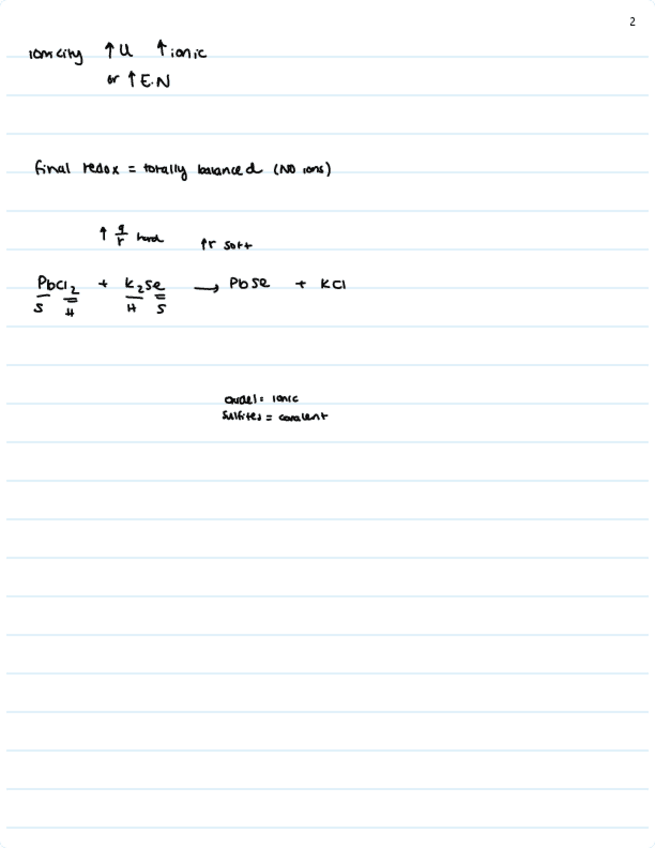 2
ionicity ↑U ↑ionic
or ↑E.N
final redox = totally balanced (NO ions)
↑ q/r hard ↑r soft
PbCl2 + K2Se → PbSe + KCl
S H H S
= ionic
Sulfites = covalent